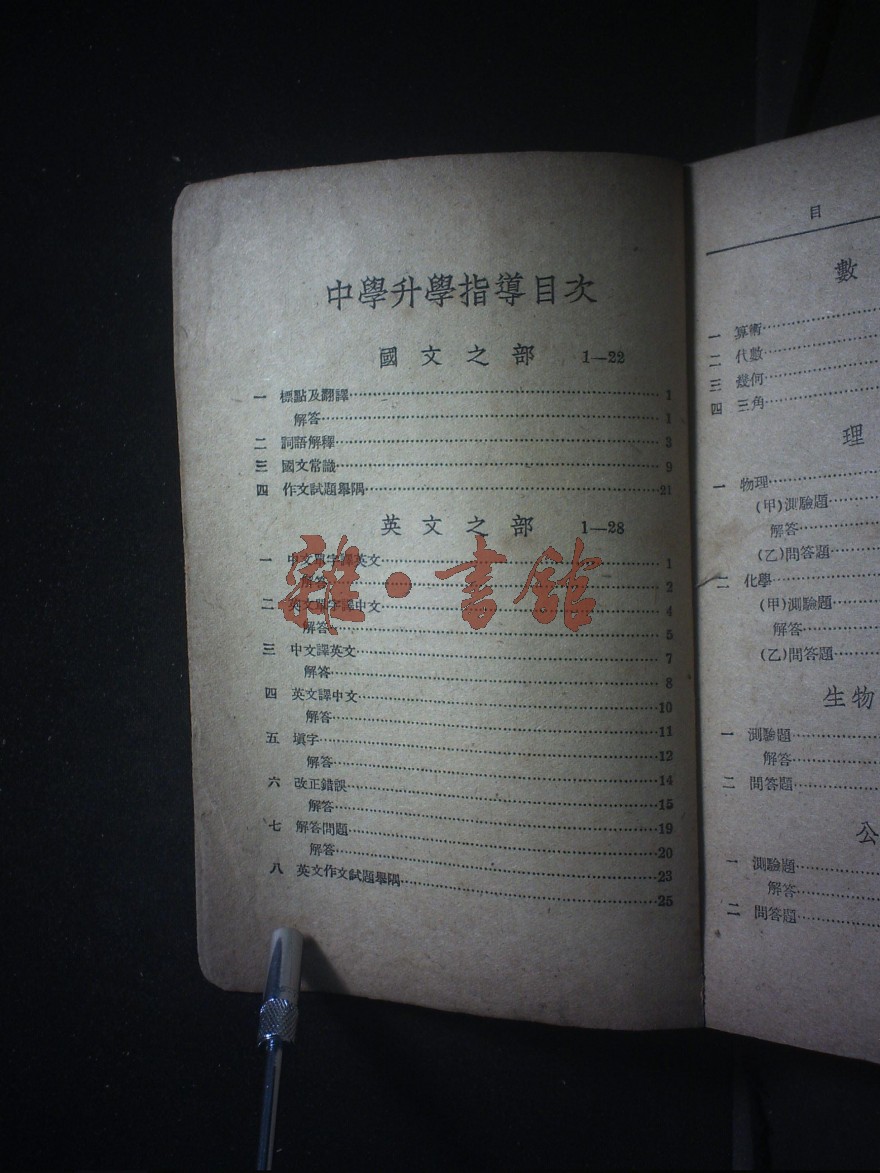 中學升學指導目次
國文之部 1—22
一 標點及翻譯……1
解答……1
二 詞語解釋……3
三 國文常識……9
四 作文試題舉隅……21
英文之部 1—28
一 中文單字譯英文……1
解答……2
二 英文單字譯中文……4
解答……5
三 中文譯英文……7
解答……8
四 英文譯中文……10
解答……11
五 填字……12
解答……14
六 改正錯誤……15
解答……19
七 解答問題……20
解答……23
八 英文作文試題舉隅……25
雜·書館
目
數
一 算術……
二 代數……
三 幾何……
四 三角……
理
一 物理……
(甲)測驗題……
解答……
(乙)問答題……
二 化學……
(甲)測驗題……
解答……
(乙)問答題……
生物
一 測驗題……
解答……
二 問答題……
公
一 測驗題……
解答……
二 問答題……